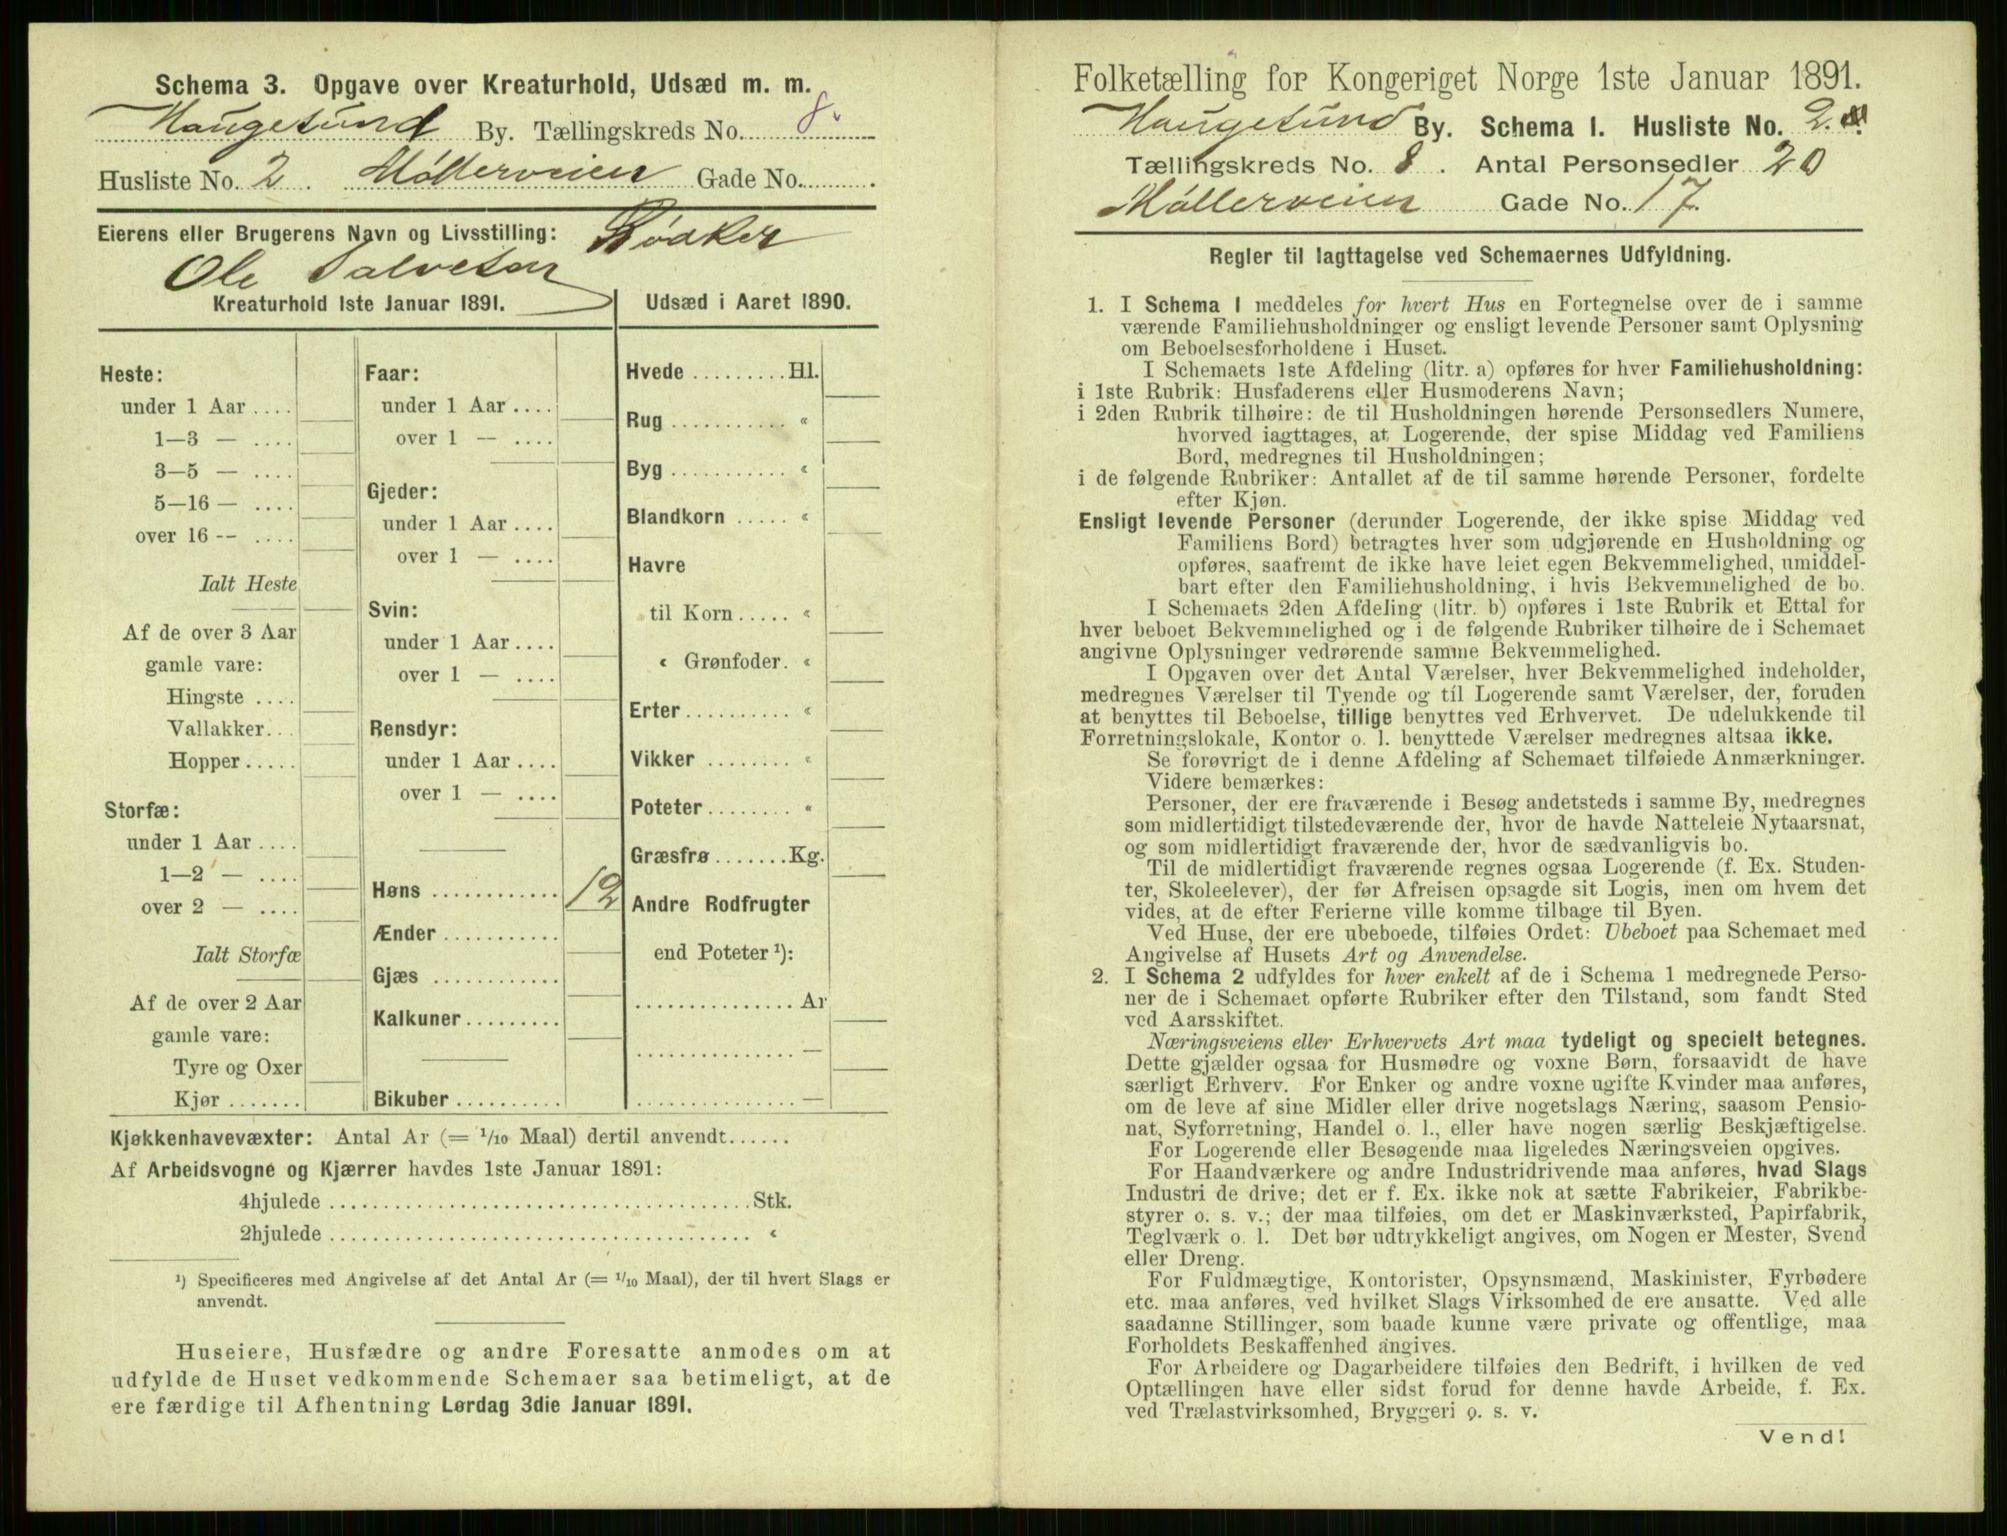 Schema 3. Opgave over Kreaturhold, Udsæd m. m.
Haugesund By. Tællingskreds No. 8.
Husliste No. 2. Møllerveien Gade No.
Eierens eller Brugerens Navn og Livsstilling: Bødker
Ole Salvesen
Kreaturhold 1ste Januar 1891.
Heste:
under 1 Aar ....
1—3 — ....
3—5 — ....
5—16 — ....
over 16 -- ....
Ialt Heste
Af de over 3 Aar
gamle vare:
Hingste ....
Vallakker...
Hopper.....
Storfæ:
under 1 Aar ....
1—2 — ....
over 2 — ....
Ialt Storfæ
Af de over 2 Aar
gamle vare:
Tyre og Oxer
Kjør .......
Faar:
under 1 Aar ....
over 1 — ....
Gjeder:
under 1 Aar ....
over 1 — ....
Svin:
under 1 Aar ....
over 1 — ....
Rensdyr:
under 1 Aar ....
over 1 — ....
Høns ............ 12
Ænder ...........
Gjæs ............
Kalkuner.........
Bikuber ..........
Udsæd i Aaret 1890.
Hvede .........Hl.
Rug ........... «
Byg ........... «
Blandkorn ..... «
Havre
til Korn..... «
« Grønfoder. «
Erter.......... «
Vikker ........ «
Poteter........ «
Græsfrø.......Kg.
Andre Rodfrugter
end Poteter ¹):
............... Ar
............... —
............... —
Kjøkkenhavevæxter: Antal Ar (= 1/10 Maal) dertil anvendt......
Af Arbeidsvogne og Kjærrer havdes 1ste Januar 1891:
4hjulede ....................................Stk.
2hjulede .................................... «
¹) Specificeres med Angivelse af det Antal Ar (= 1/10 Maal), der til hvert Slags er
anvendt.
Huseiere, Husfædre og andre Foresatte anmodes om at
udfylde de Huset vedkommende Schemaer saa betimeligt, at de
ere færdige til Afhentning Lørdag 3die Januar 1891.
Folketælling for Kongeriget Norge 1ste Januar 1891.
Haugesund By. Schema 1. Husliste No. 2.
Tællingskreds No. 8. Antal Personsedler 20
Møllerveien Gade No. 17.
Regler til Iagttagelse ved Schemaernes Udfyldning.
1. I Schema 1 meddeles for hvert Hus en Fortegnelse over de i samme
værende Familiehusholdninger og ensligt levende Personer samt Oplysning
om Beboelsesforholdene i Huset.
I Schemaets 1ste Afdeling (litr. a) opføres for hver Familiehusholdning:
i 1ste Rubrik: Husfaderens eller Husmoderens Navn;
i 2den Rubrik tilhøire: de til Husholdningen hørende Personsedlers Numere,
hvorved iagttages, at Logerende, der spise Middag ved Familiens
Bord, medregnes til Husholdningen;
i de følgende Rubriker: Antallet af de til samme hørende Personer, fordelte
efter Kjøn.
Ensligt levende Personer (derunder Logerende, der ikke spise Middag ved
Familiens Bord) betragtes hver som udgjørende en Husholdning og
opføres, saafremt de ikke have leiet egen Bekvemmelighed, umiddel-
bart efter den Familiehusholdning, i hvis Bekvemmelighed de bo.
I Schemaets 2den Afdeling (litr. b) opføres i 1ste Rubrik et Ettal for
hver beboet Bekvemmelighed og i de følgende Rubriker tilhøire de i Schemaet
angivne Oplysninger vedrørende samme Bekvemmelighed.
I Opgaven over det Antal Værelser, hver Bekvemmelighed indeholder,
medregnes Værelser til Tyende og til Logerende samt Værelser, der, foruden
at benyttes til Beboelse, tillige benyttes ved Erhvervet. De udelukkende til
Forretningslokale, Kontor o. l. benyttede Værelser medregnes altsaa ikke.
Se forøvrigt de i denne Afdeling af Schemaet tilføiede Anmærkninger.
Videre bemærkes:
Personer, der ere fraværende i Besøg andetsteds i samme By, medregnes
som midlertidigt tilstedeværende der, hvor de havde Natteleie Nytaarsnat,
og som midlertidigt fraværende der, hvor de sædvanligvis bo.
Til de midlertidigt fraværende regnes ogsaa Logerende (f. Ex. Studen-
ter, Skoleelever), der før Afreisen opsagde sit Logis, men om hvem det
vides, at de efter Ferierne ville komme tilbage til Byen.
Ved Huse, der ere ubeboede, tilføies Ordet: Ubeboet paa Schemaet med
Angivelse af Husets Art og Anvendelse.
2. I Schema 2 udfyldes for hver enkelt af de i Schema 1 medregnede Perso-
ner de i Schemaet opførte Rubriker efter den Tilstand, som fandt Sted
ved Aarsskiftet.
Næringsveiens eller Erhvervets Art maa tydeligt og specielt betegnes.
Dette gjælder ogsaa for Husmødre og voxne Børn, forsaavidt de have
særligt Erhverv. For Enker og andre voxne ugifte Kvinder maa anføres,
om de leve af sine Midler eller drive nogetslags Næring, saasom Pensio-
nat, Syforretning, Handel o. l., eller have nogen særlig Beskjæftigelse.
For Logerende eller Besøgende maa ligeledes Næringsveien opgives.
For Haandværkere og andre Industridrivende maa anføres, hvad Slags
Industri de drive; det er f. Ex. ikke nok at sætte Fabrikeier, Fabrikbe-
styrer o. s. v.; der maa tilføies, om det er Maskinværksted, Papirfabrik,
Teglværk o. l. Det bør udtrykkeligt angives, om Nogen er Mester, Svend
eller Dreng.
For Fuldmægtige, Kontorister, Opsynsmænd, Maskinister, Fyrbødere
etc. maa anføres, ved hvilket Slags Virksomhed de ere ansatte. Ved alle
saadanne Stillinger, som baade kunne være private og offentlige, maa
Forholdets Beskaffenhed angives.
For Arbeidere og Dagarbeidere tilføies den Bedrift, i hvilken de ved
Optællingen have eller sidst forud for denne havde Arbeide, f. Ex.
ved Trælastvirksomhed, Bryggeri o. s. v.
Vend!